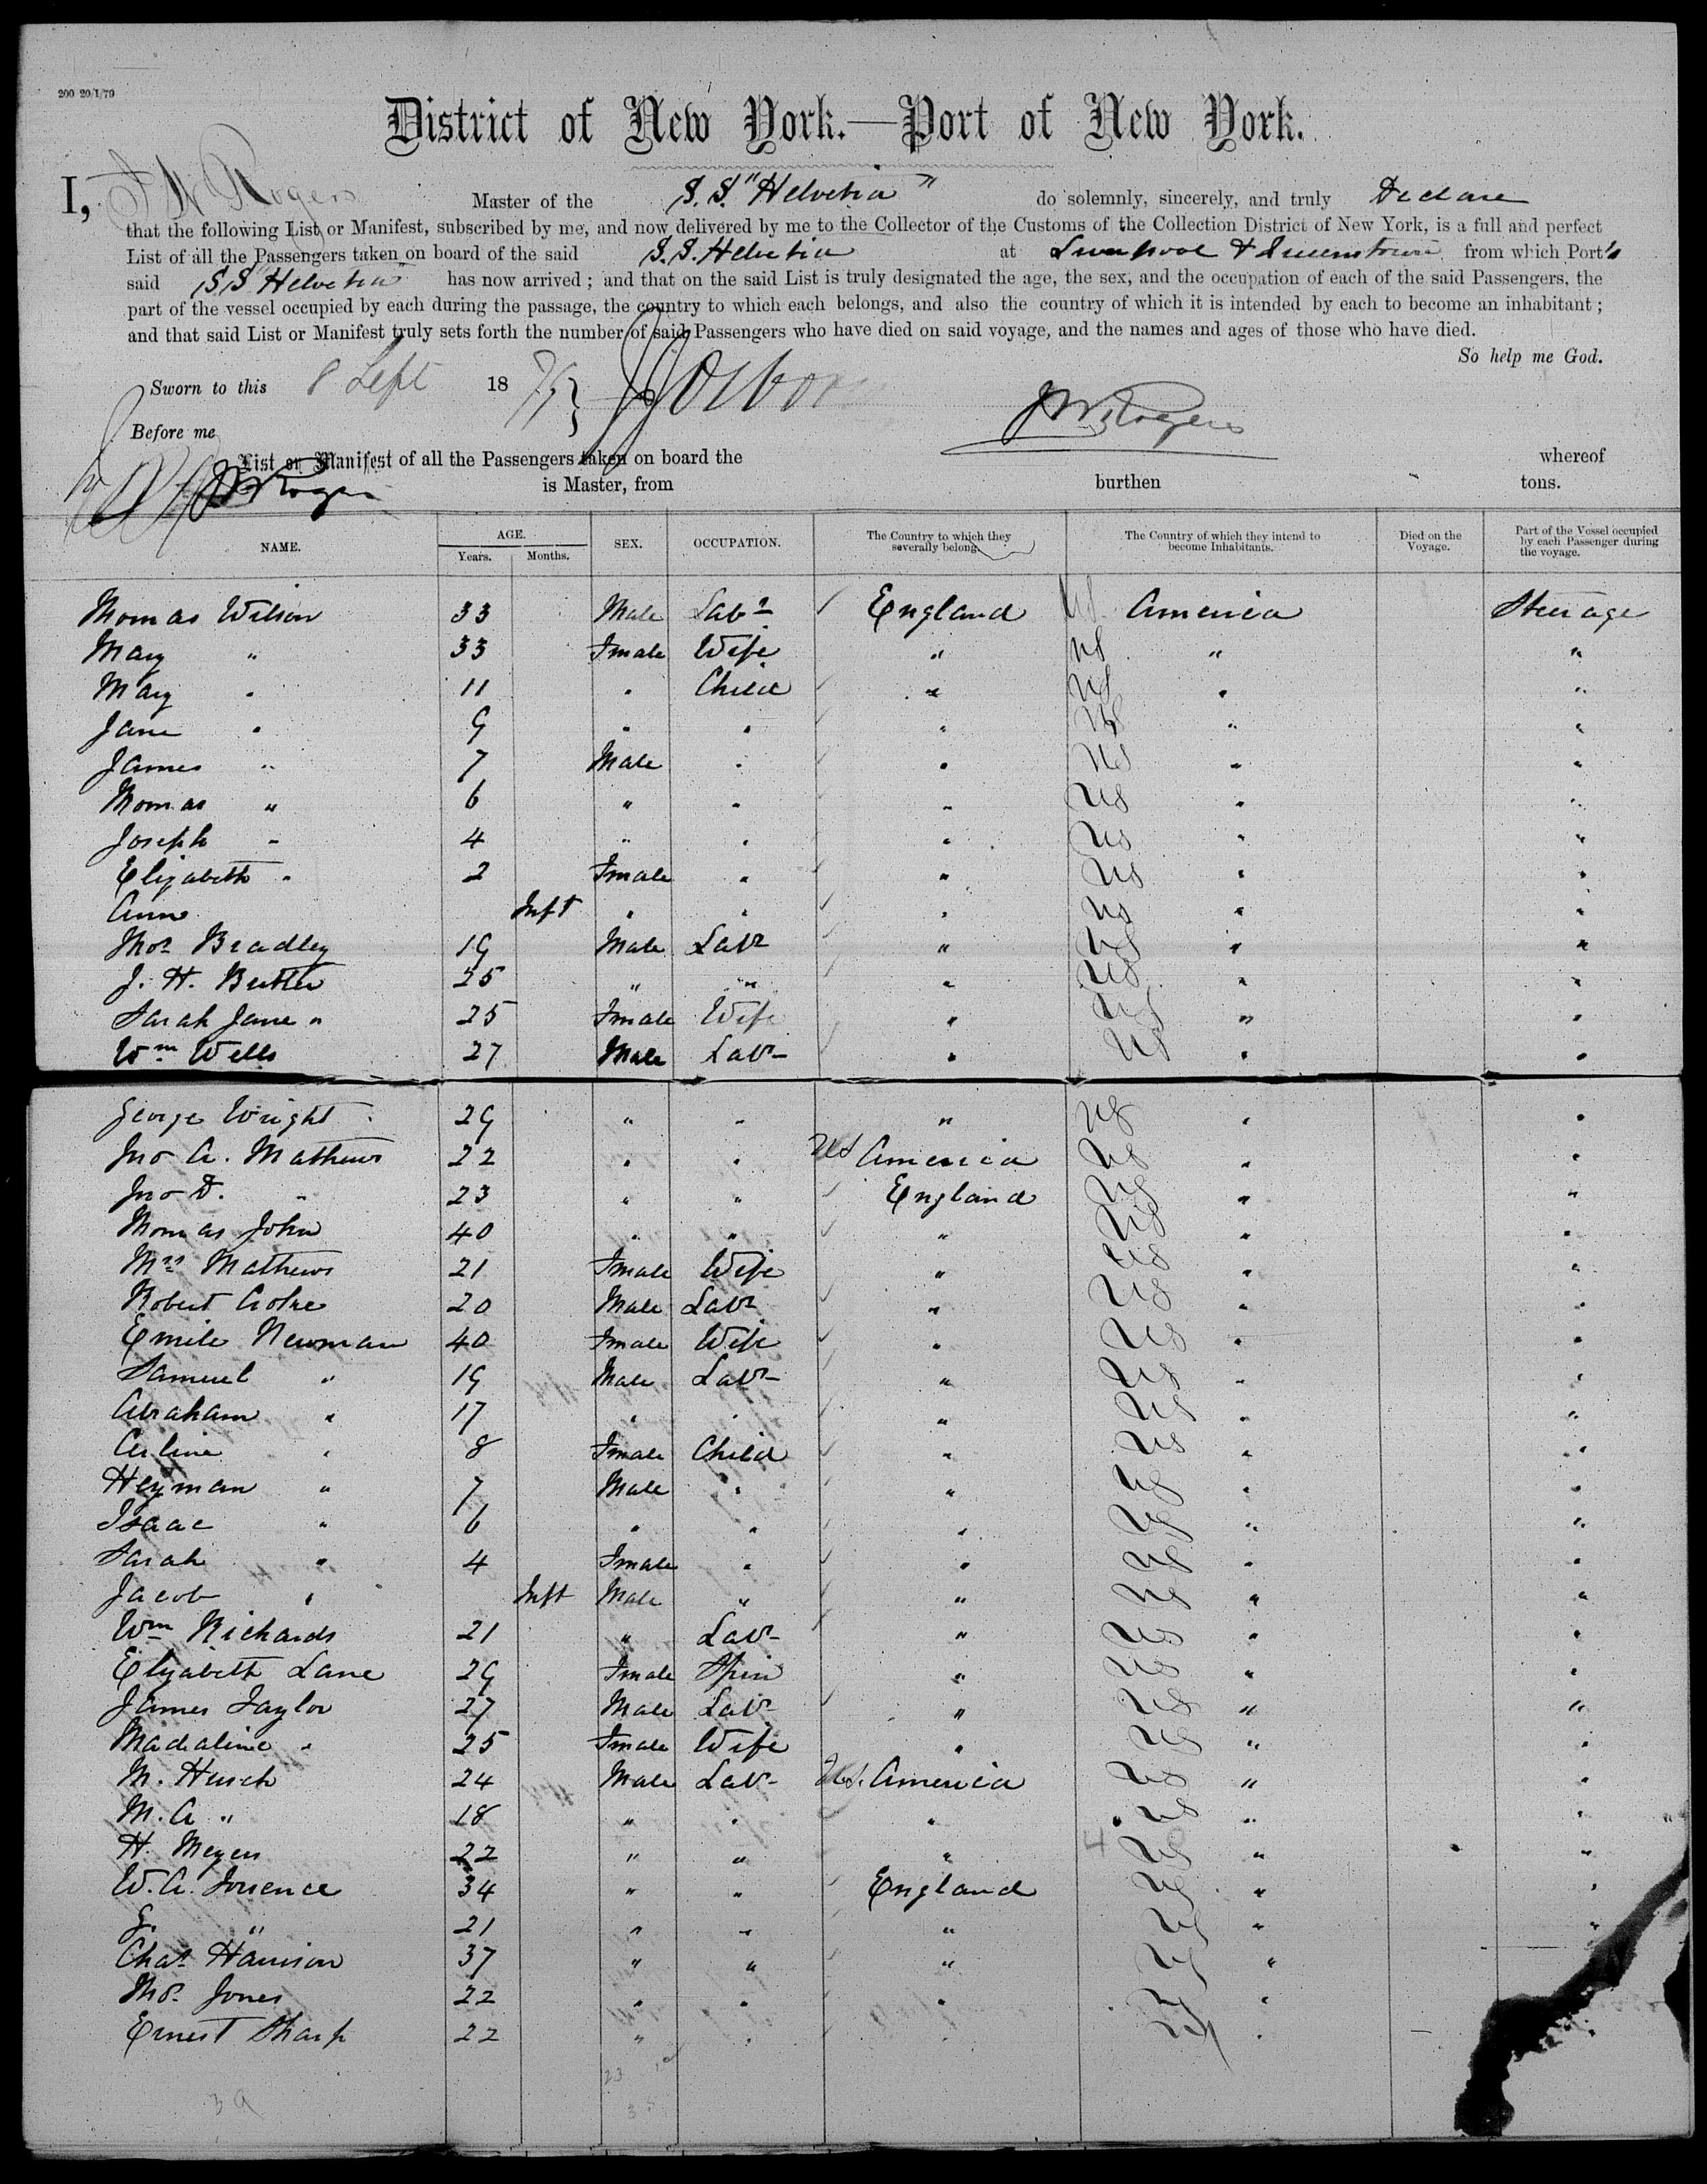 200 20/1/79
District of New York.—Port of New York.
I, J W Rogers Master of the S.S. "Helvetia" do solemnly, sincerely, and truly Declare
that the following List or Manifest, subscribed by me, and now delivered by me to the Collector of the Customs of the Collection District of New York, is a full and perfect
List of all the Passengers taken on board of the said S.S. Helvetia at Liverpool & Queenstown from which Port's
said S.S "Helvetia" has now arrived; and that on the said List is truly designated the age, the sex, and the occupation of each of the said Passengers, the
part of the vessel occupied by each during the passage, the country to which each belongs, and also the country of which it is intended by each to become an inhabitant;
and that said List or Manifest truly sets forth the number of said Passengers who have died on said voyage, and the names and ages of those who have died.
So help me God.
Sworn to this 8 Sept 1879
J W Rogers
Before me
List or Manifest of all the Passengers taken on board the whereof
J W Rogers is Master, from burthen tons.
NAME. AGE. Years. Months. SEX. OCCUPATION. The Country to which they severally belong. The Country of which they intend to become Inhabitants. Died on the Voyage. Part of the Vessel occupied by each Passenger during the voyage.
Thomas Wilson 33 Male Labr England US America Steerage
Mary " 33 Female Wife " US " "
Mary " 11 " Child " US " "
Jane " 9 " " " US " "
James " 7 Male " " US " "
Thomas " 6 " " " US " "
Joseph " 4 " " " US " "
Elizabeth " 2 Female " " US " "
Anne Inft " " " US " "
Thos Bradley 19 Male Labr " US " "
J. H. Butler 25 " " " US " "
Sarah Jane " 25 Female Wife " US " "
Wm Wells 27 Male Labr " US " "
George Wright 29 " " " US " "
Jno A. Mathews 22 " " US America US " "
Jno D. " 23 " " England US " "
Thomas John 40 " " " US " "
Mrs Mathews 21 Female Wife " US " "
Robert 20 Male Labr " US " "
Emile Newman 40 Female Wife " US " "
Samuel " 19 Male Labr " US " "
Abraham " 17 " " " US " "
" 8 Female Child " US " "
Heyman " 7 Male " " US " "
Isaac " 6 " " " US " "
Sarah " 4 Female " " US " "
Jacob " Inft Male " " US " "
Wm Richards 21 " Labr " US " "
Elizabeth Lane 29 Female Spin " US " "
James Taylor 27 Male Labr " US " "
Madaline " 25 Female Wife " US " "
M. Hirsch 24 Male Labr US. America US " "
M. A " 18 " " " US " "
H. Meyers 22 " " " US " "
W. A. Torrence 34 " " England US " "
G. " 21 " " " US " "
Chas Harrison 37 " " " US "
Thos Jones 22 " " " US "
Ernest Sharp 22 " " " US "
39